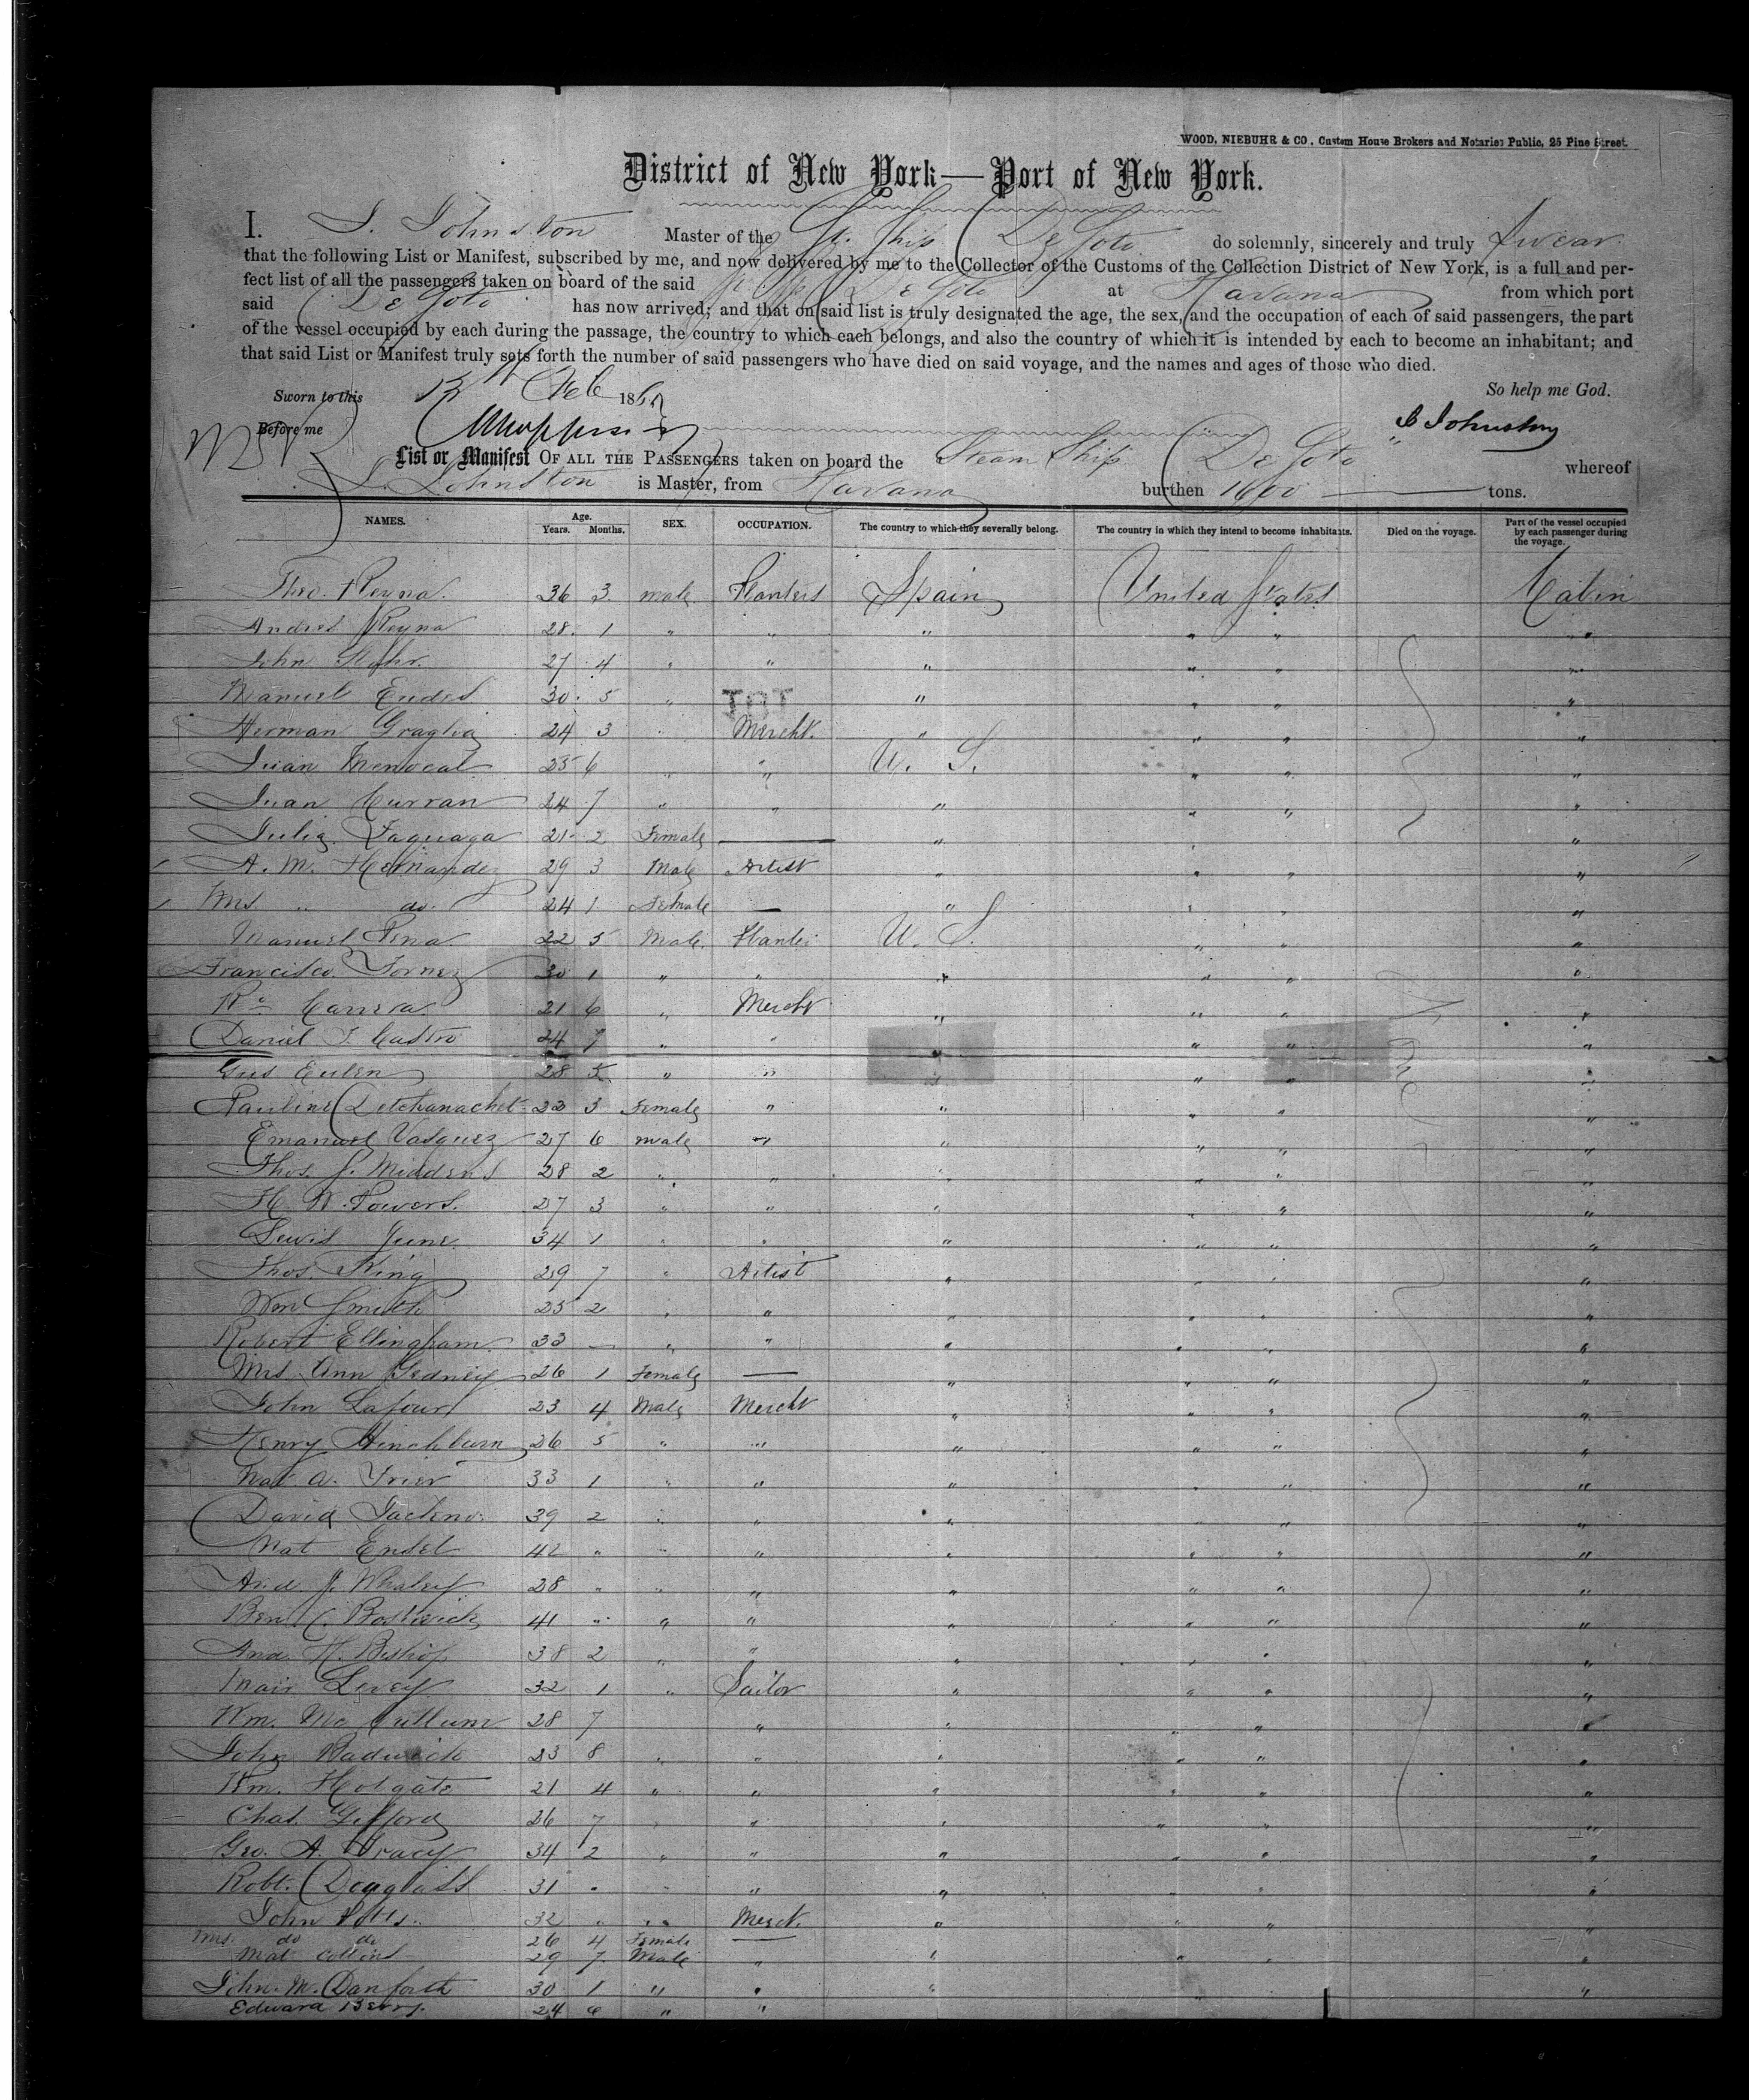 WOOD, NIEBUHR & CO, Custom House Brokers and Notaries Public, 25 Pine Street.
District of New York—Port of New York.
I. S. Johnston Master of the St. Ship De Soto do solemnly, sincerely and truly swear
that the following List or Manifest, subscribed by me, and now delivered by me to the Collector of the Customs of the Collection District of New York, is a full and per-
fect list of all the passengers taken on board of the said St. Ship De Soto at Havana from which port
said De Soto has now arrived; and that on said list is truly designated the age, the sex, and the occupation of each of said passengers, the part
of the vessel occupied by each during the passage, the country to which each belongs, and also the country of which it is intended by each to become an inhabitant; and
that said List or Manifest truly sets forth the number of said passengers who have died on said voyage, and the names and ages of those who died.
So help me God.
Sworn to this Feb 186
Before me Johnston
List or Manifest OF ALL THE PASSENGERS taken on board the Steam Ship De Soto whereof
S. Johnston is Master, from Havana burthen 1600 tons.
NAMES. Age. Years. Months. SEX. OCCUPATION. The country to which they severally belong. The country in which they intend to become inhabitants. Died on the voyage. Part of the vessel occupied by each passenger during the voyage.
Theo. Reyna. 36 3 male Planters Spain United States Cabin
Andres Reyna 28 1 " " " " " "
John 27 4 " " " " " "
Manuel 30 5 " " " " "
Herman Graglia 24 3 " Mercht. " " " "
Juan Menocal 25 6 " " U. S. " " "
Juan Curran 24 7 " " " " " "
Julia Faguaga 21 2 Female — " " "
A. M. Hernandez 29 3 Male Artist " " " "
Mrs " do. 24 1 Female — " " " "
Manuel Pena 22 5 Male. Planter U. S. " " "
Francisco Fornez 30 1 " " " " " "
21 6 " Mercht " " " "
Daniel J. Castro 24 7 " " " " " "
Gus Eulen 28 5 " " " " " "
Pauline 22 3 Female " " " " "
Emanuel Vasquez 27 6 male " " " " "
Thos. J. 28 2 " " " " " "
H. W. Powers. 27 3 " " " " " "
Lewis June 34 1 " " " " " "
Thos. King 29 7 " Artist " " " "
Wm Smith 25 2 " " " " " "
Robert Ellingham 33 — " " " " " "
Mrs Ann Gedney 26 1 Female — " " " "
John Lafour 23 4 Male Mercht " " " "
Henry Hinchburn 26 5 " " " " " "
Nat. A. Frier 33 1 " " " " " "
David 39 2 " " " " " "
Nat Endel 42 " " " " " " "
And. J. Whaley 28 " " " " " " "
Ben. C. Bostwick 41 " " " " " " "
And. H. Bishop 38 2 " " " " " "
Levey 32 1 " Sailor " " " "
Wm. McCullum 28 7 " " " " "
John Badwick 23 8 " " " " " "
Wm. Holgate 21 4 " " " " " "
Chas. Gifford 26 7 " " " " " "
Geo. A. Tracy 34 2 " " " " " "
Robt. Douglass 31 " " " " " " "
John Potts 32 " " Mercht. " " " "
Mrs. do do 26 4 Female —
Mat Collins 29 7 Male " " " " "
John. M. Danforth 30 1 " " " "
Edward Berry. 24 6 " "